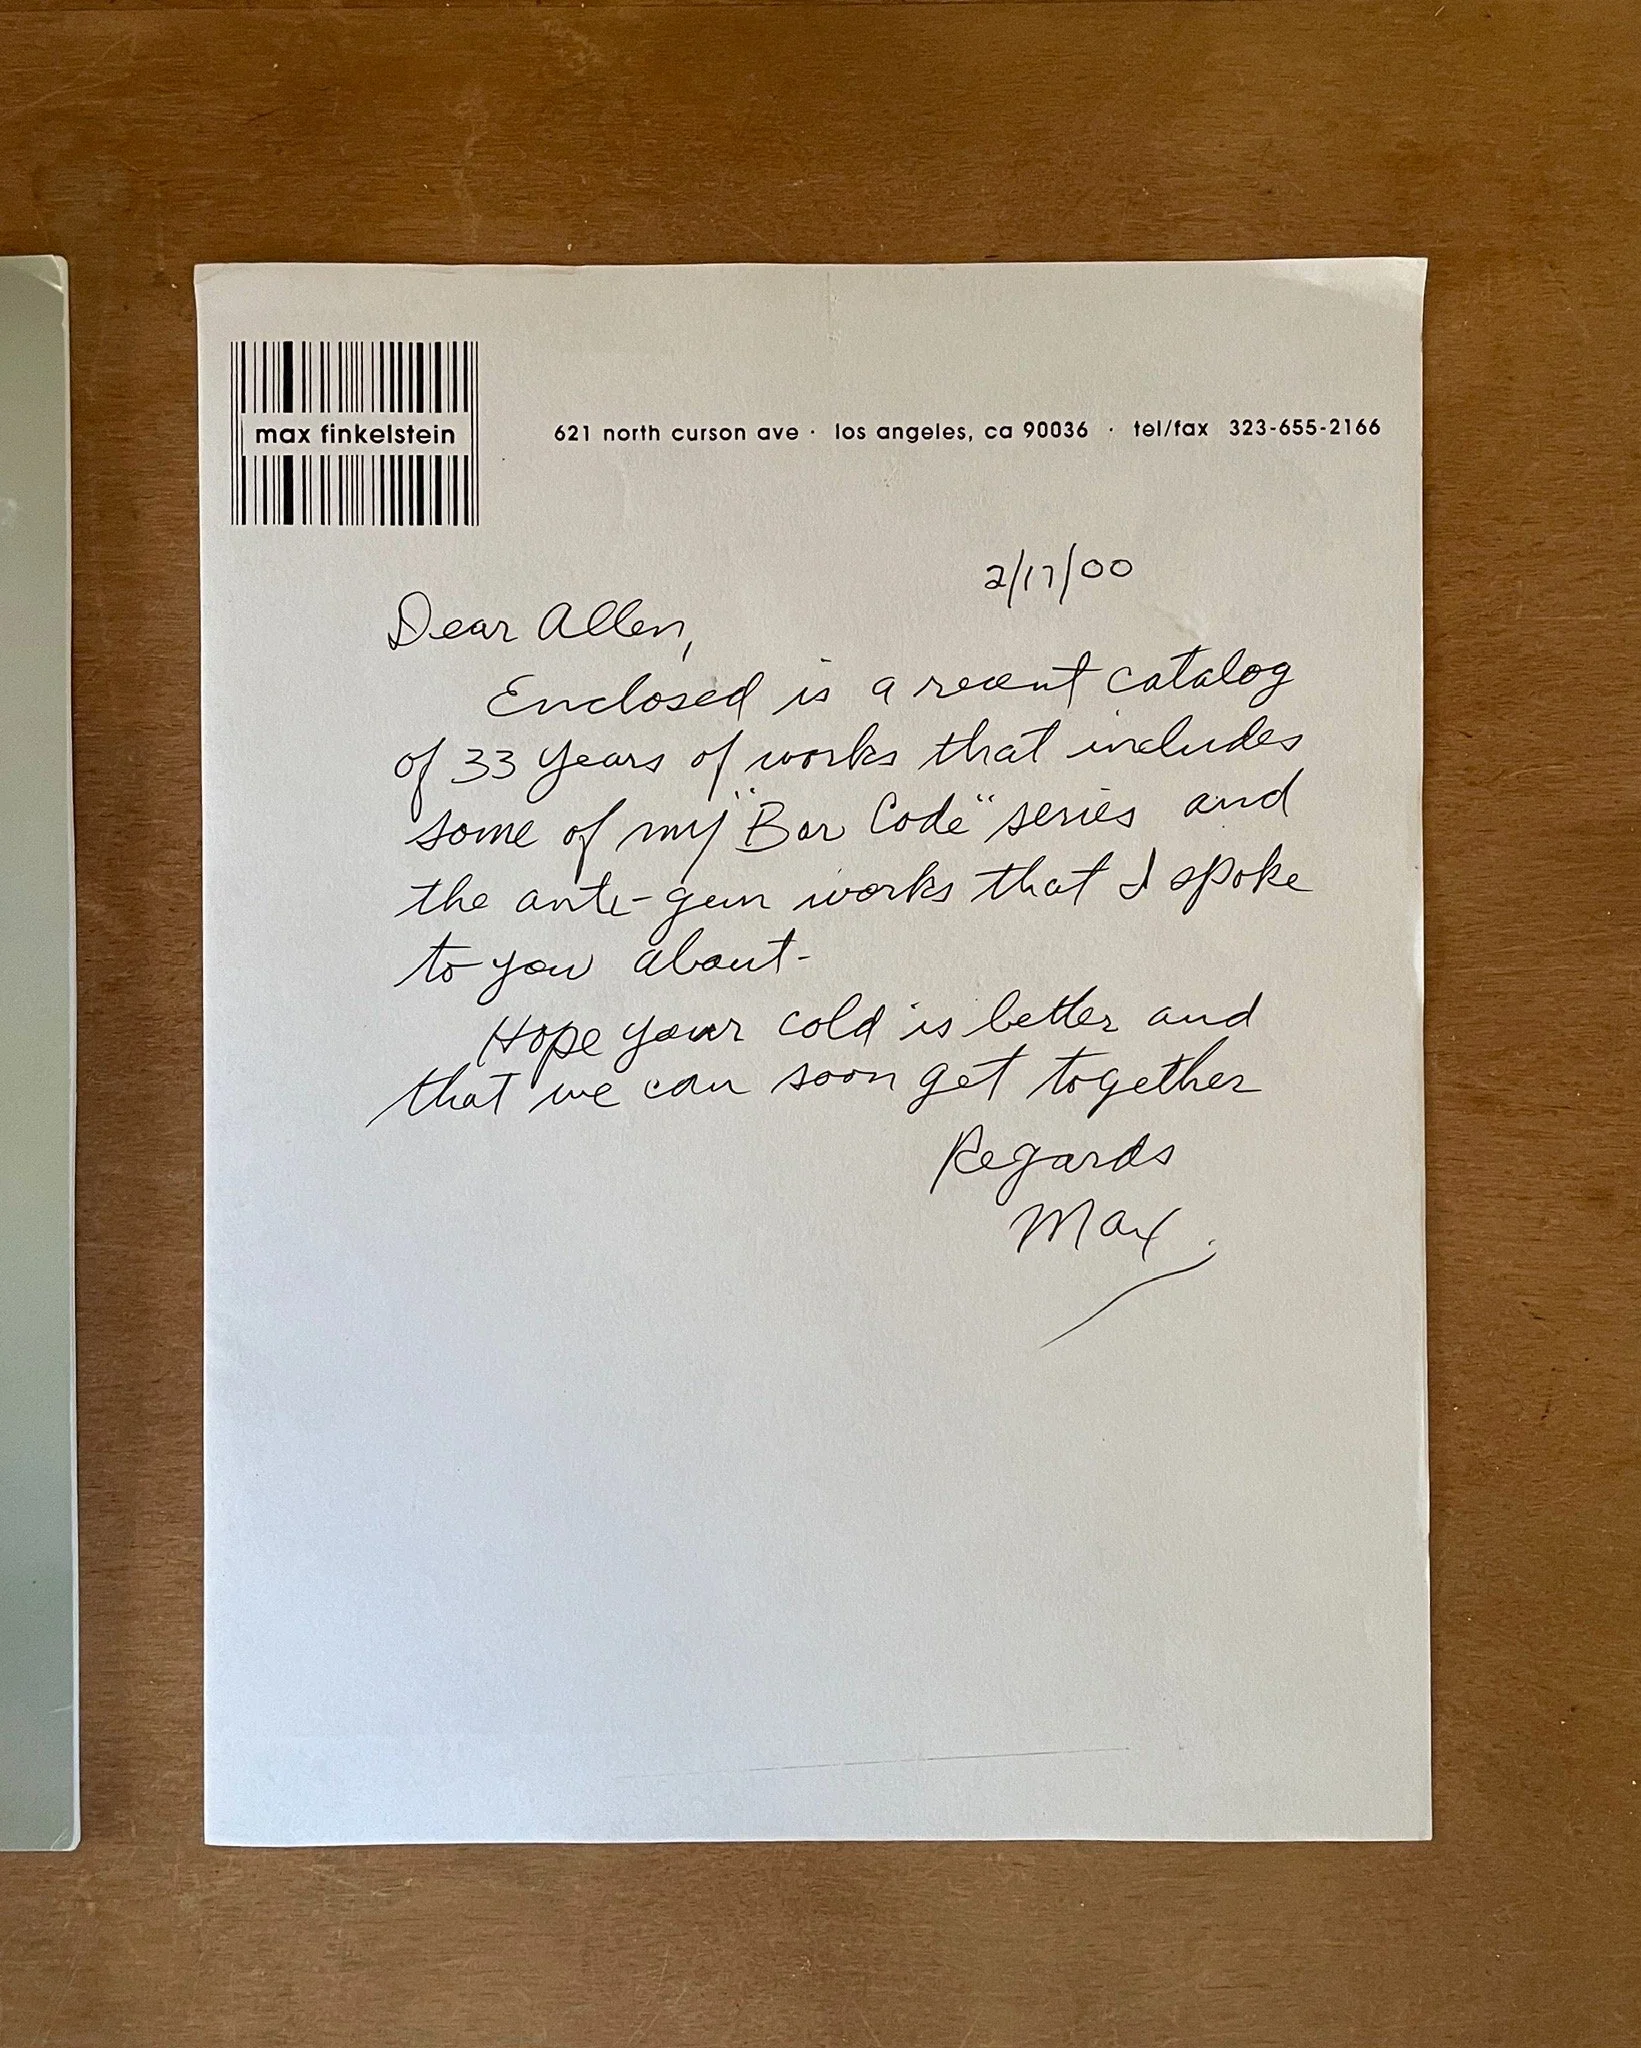 max finkelstein
621 north curson ave · los angeles, ca 90036 · tel/fax 323-655-2166
2/17/00
Dear Allen,
Enclosed is a recent catalog
of 33 years of works that includes
some of my "Bar Code" series and
the anti-gun works that I spoke
to you about-
Hope your cold is better and
that we can soon get together
Regards
Max